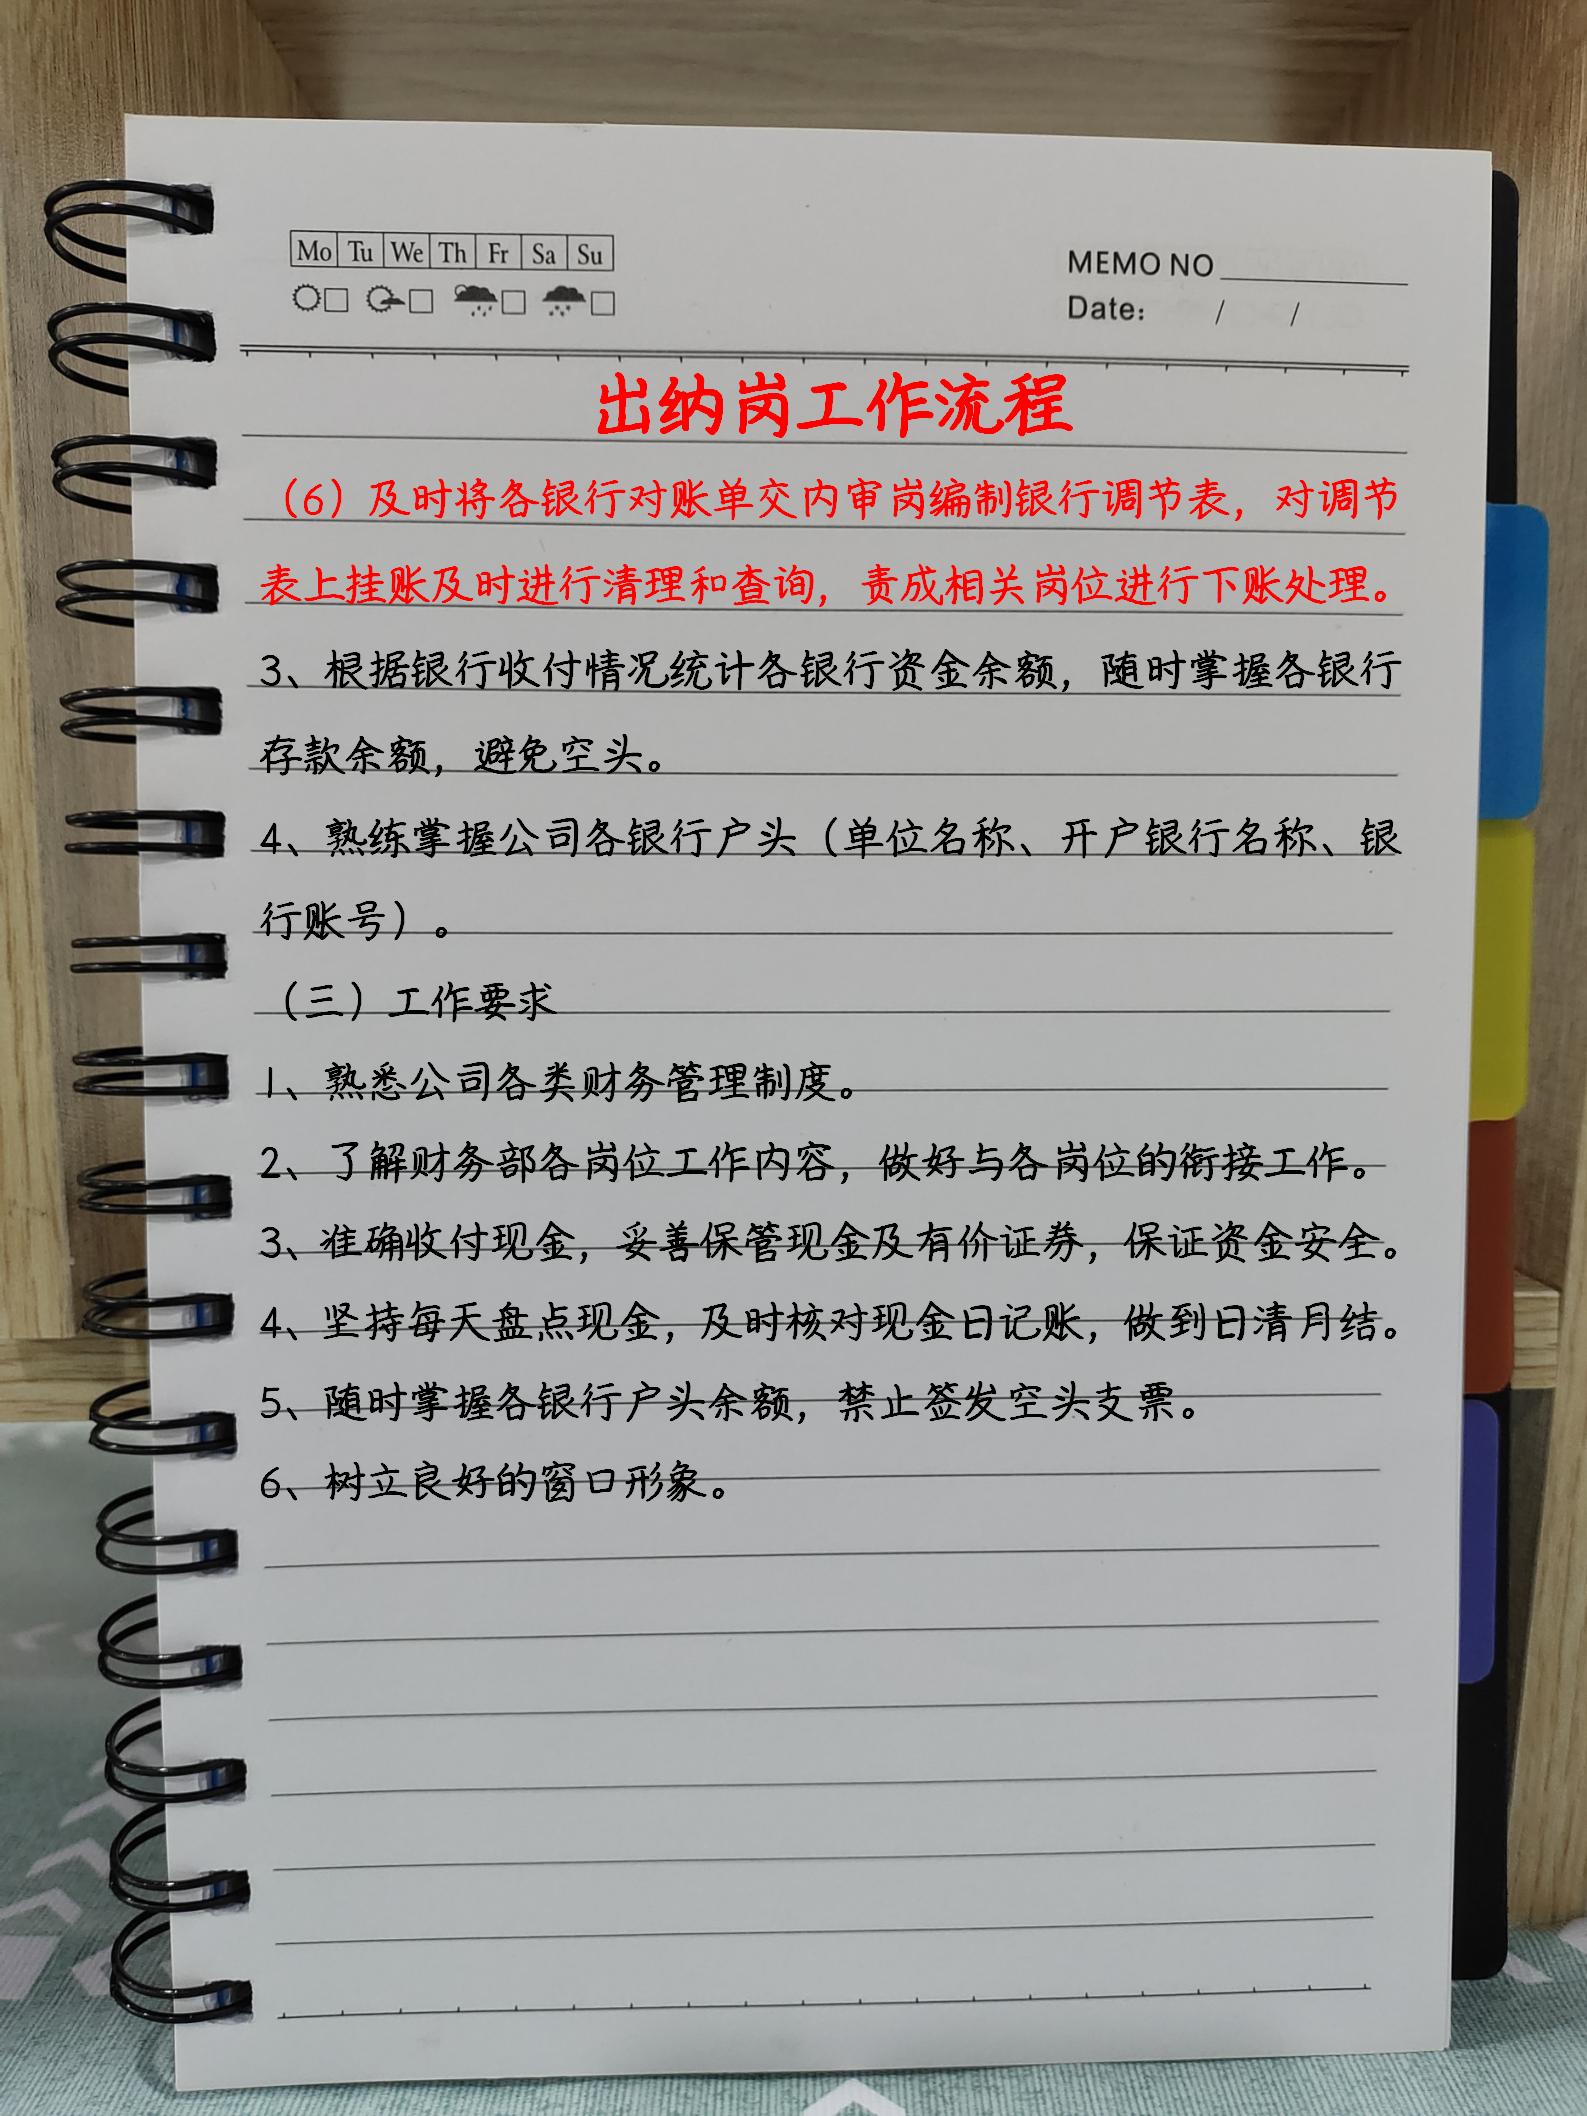 Mo Tu We Th Fr Sa Su
MEMO NO
Date: / /
出纳岗工作流程
（6）及时将各银行对账单交内审岗编制银行调节表，对调节
表上挂账及时进行清理和查询，责成相关岗位进行下账处理。
3、根据银行收付情况统计各银行资金余额，随时掌握各银行
存款余额，避免空头。
4、熟练掌握公司各银行户头（单位名称、开户银行名称、银
行账号）。
（三）工作要求
1、熟悉公司各类财务管理制度。
2、了解财务部各岗位工作内容，做好与各岗位的衔接工作。
3、准确收付现金，妥善保管现金及有价证券，保证资金安全。
4、坚持每天盘点现金，及时核对现金日记账，做到日清月结。
5、随时掌握各银行户头余额，禁止签发空头支票。
6、树立良好的窗口形象。